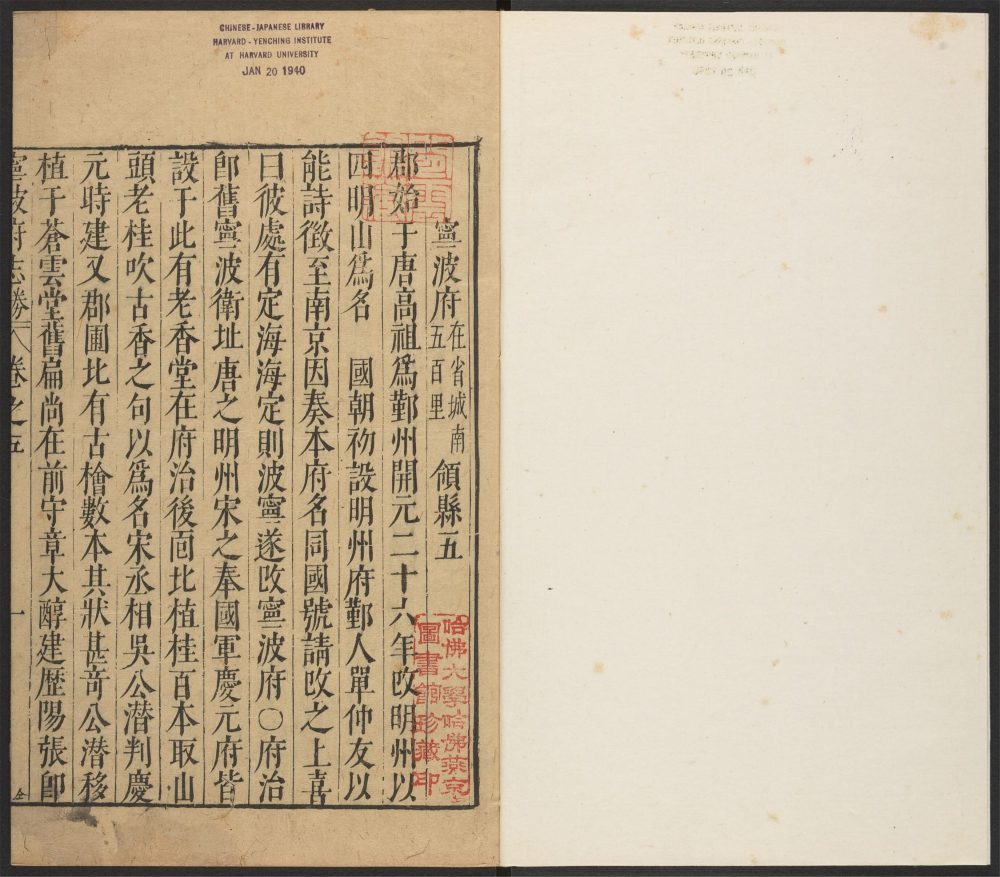 CHINESE-JAPANESE LIBRARY
HARVARD-YENCHING INSTITUTE
AT HARVARD UNIVERSITY
JAN 20 1940
寧波府在省城南五百里 領縣五
郡始于唐高祖為鄞州開元二十六年改明州以
四明山爲名 國朝初設明州府鄞人單仲友以
能詩徵至南京因奏本府名同國號請改之上喜
曰彼處有定海海定則波寧遂改寧波府○府治
卽舊寧波衛址唐之明州宋之奉國軍慶元府皆
設于此有老香堂在府治後面北植桂百本取山
頭老桂吹古香之句以爲名宋丞相吳公潜判慶
元時建又郡圃北有古檜數本其狀甚竒公潜移
植于蒼雲堂舊扁尚在前守章大醇建歷陽張卽
寧波府志勝 卷之五 一
哈佛大學哈佛燕京
圖書館珍藏印